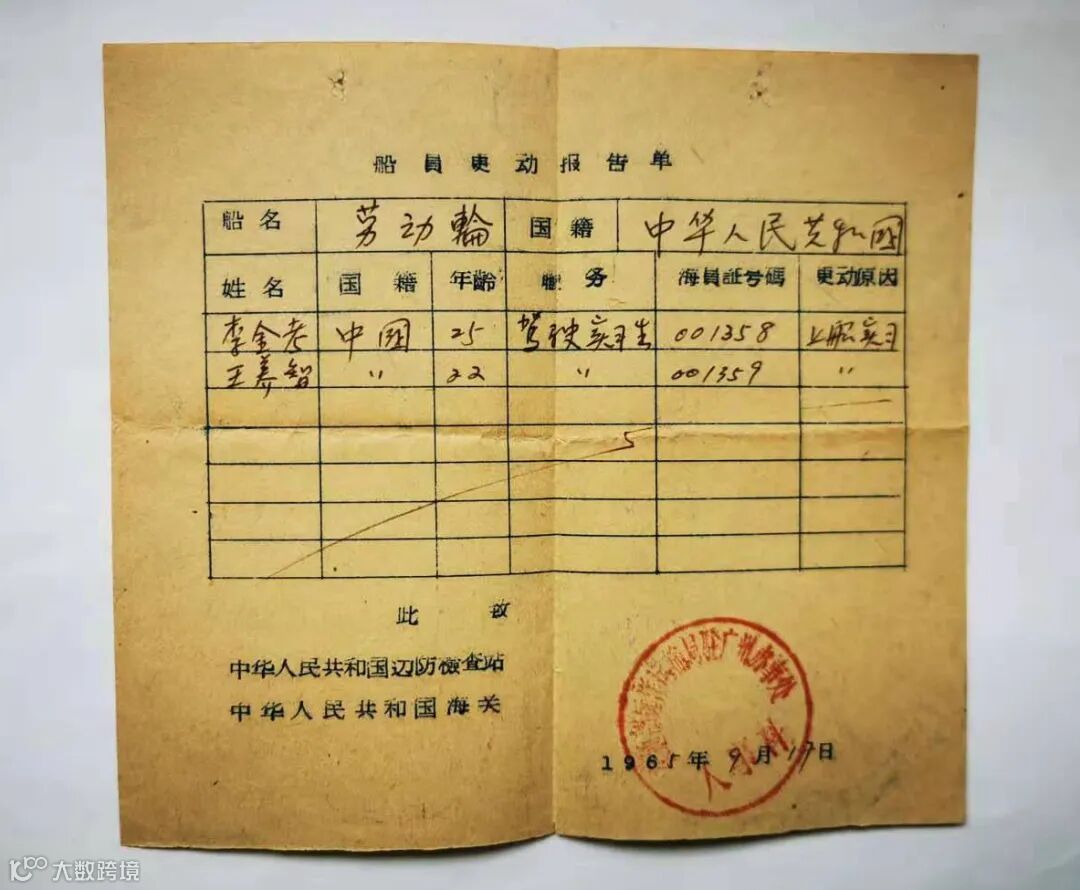 船員更动报告单
船名 劳动輪 国籍 中华人民共和國
姓名 国籍 年齡 职务 海員証号碼 更动原因
李金考 中國 25 驾驶实习生 001358 上船实习
王养智 〃 22 〃 001359 〃
此致
中华人民共和国边防檢查站
中华人民共和国海关
运输局駐广州办事处
人事科
1965年9月17日
大数跨境